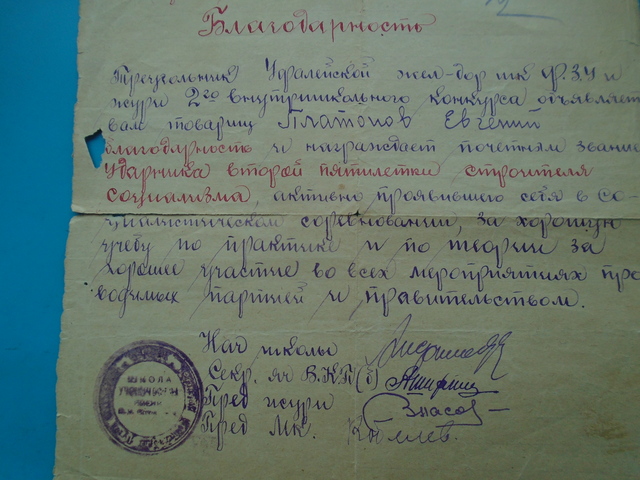 Благодарность
Треугольник Уфалейской жел-дор шк Ф.З.У и
жури 2го внутришкольного конкурса объявляет
вам товарищ Платонов Евгений
благодарность и награждает почетным звание
Ударника второй пятилетки строителя
социализма, активно проявившего себя в со-
циалистическом соревновании, за хорошую
учебу по практике и по теории за
хорошее участие во всех мероприятиях про
водимых партией и правительством.
Нач школы
Секр. яч В.К.П(б)
Пред жури
Власов
Пред МК.
ШКОЛА